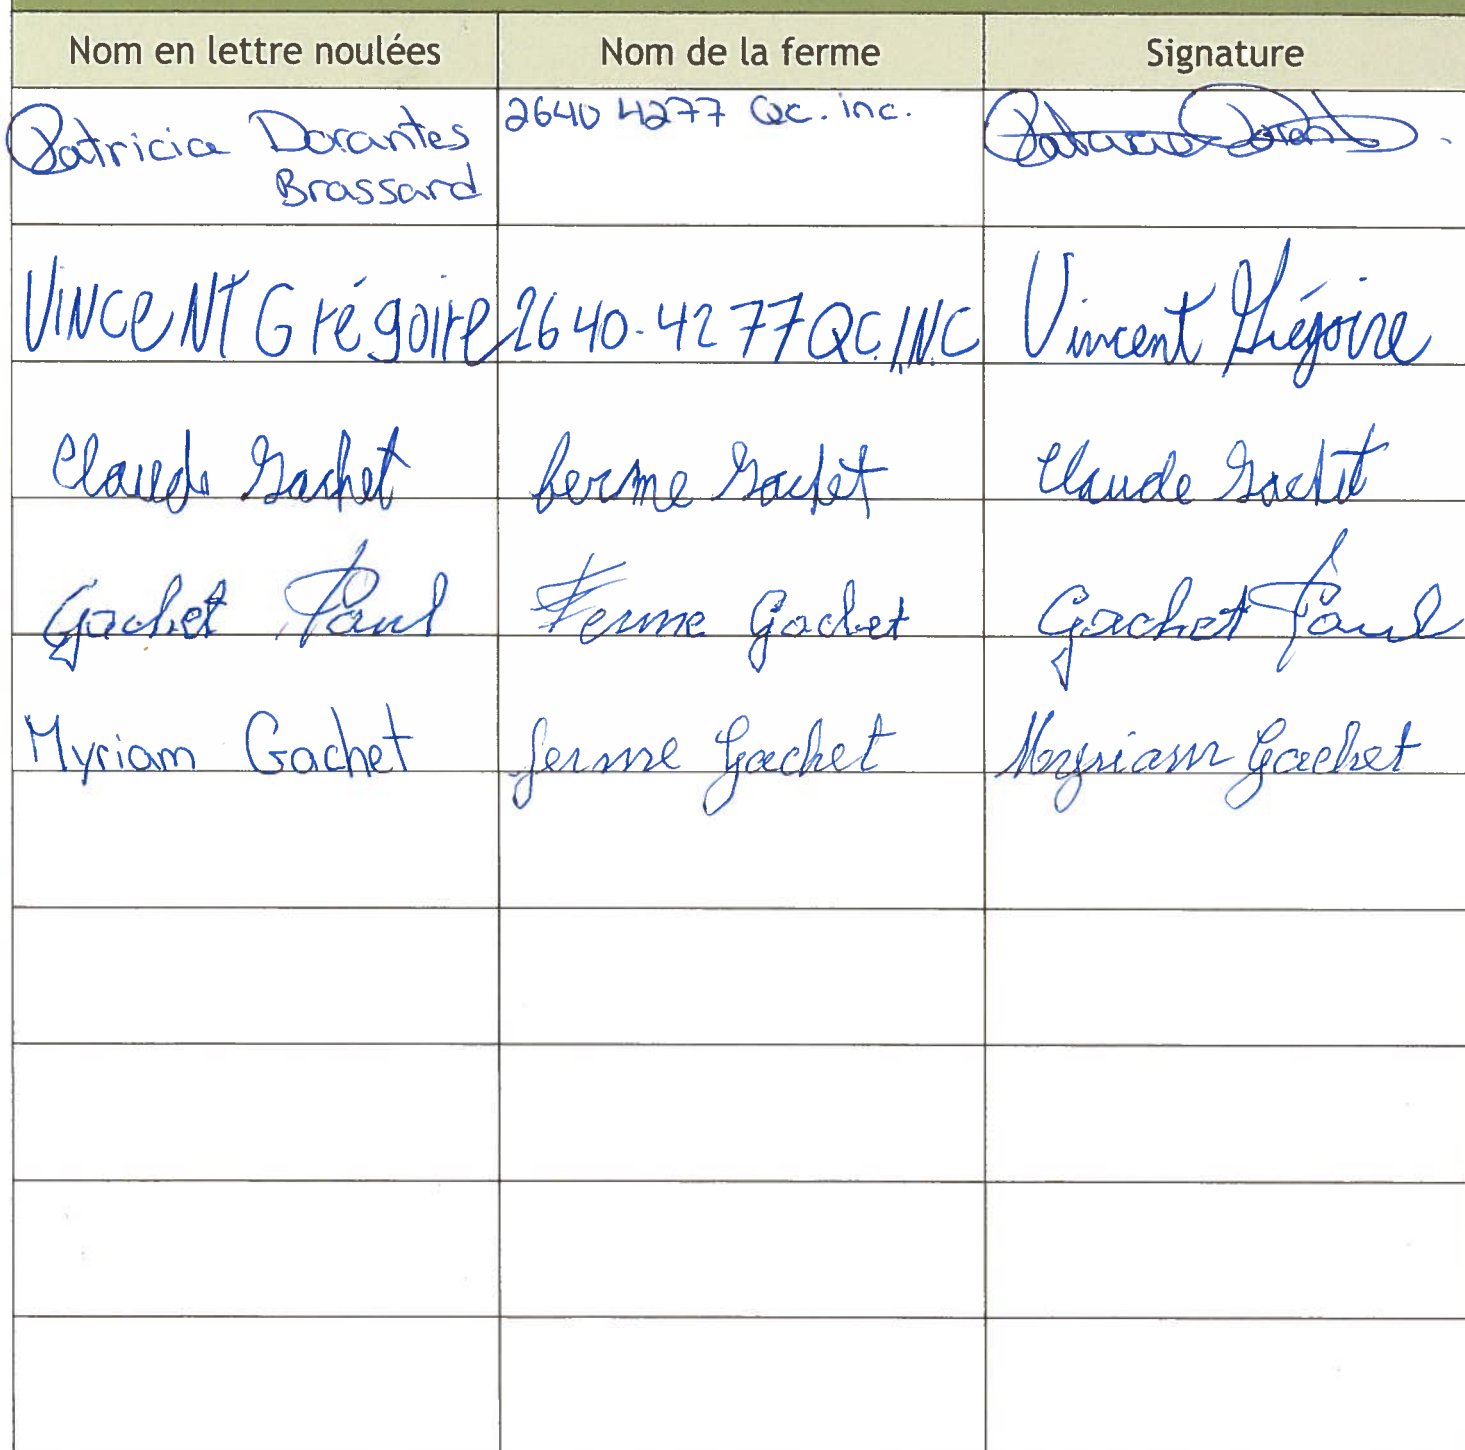 Nom en lettre noulées Nom de la ferme Signature
Patricia Dorantes 2640 4277 Qc. inc. Patricia Dorantes
Brassard
VINCENT Grégoire 2640-4277 QC.INC Vincent Grégoire
Claude Gachet ferme Gachet Claude Gachet
Gachet Paul Ferme Gachet Gachet Paul
Myriam Gachet ferme Gachet Myriam Gachet